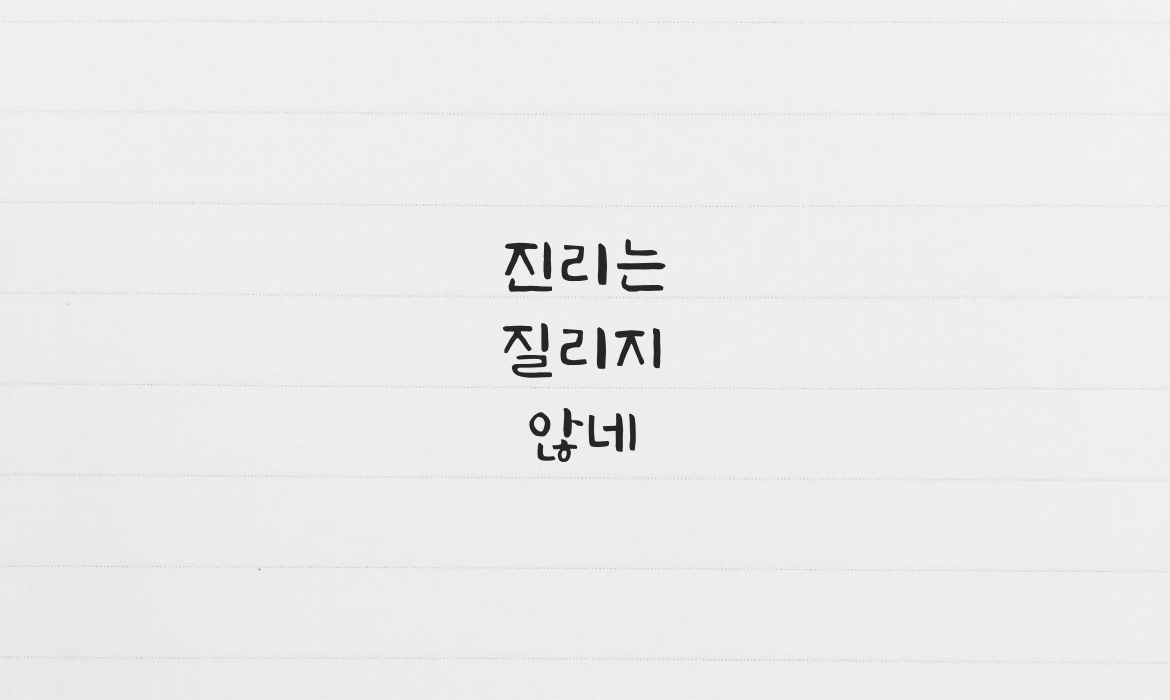 진리는
질리지
않네